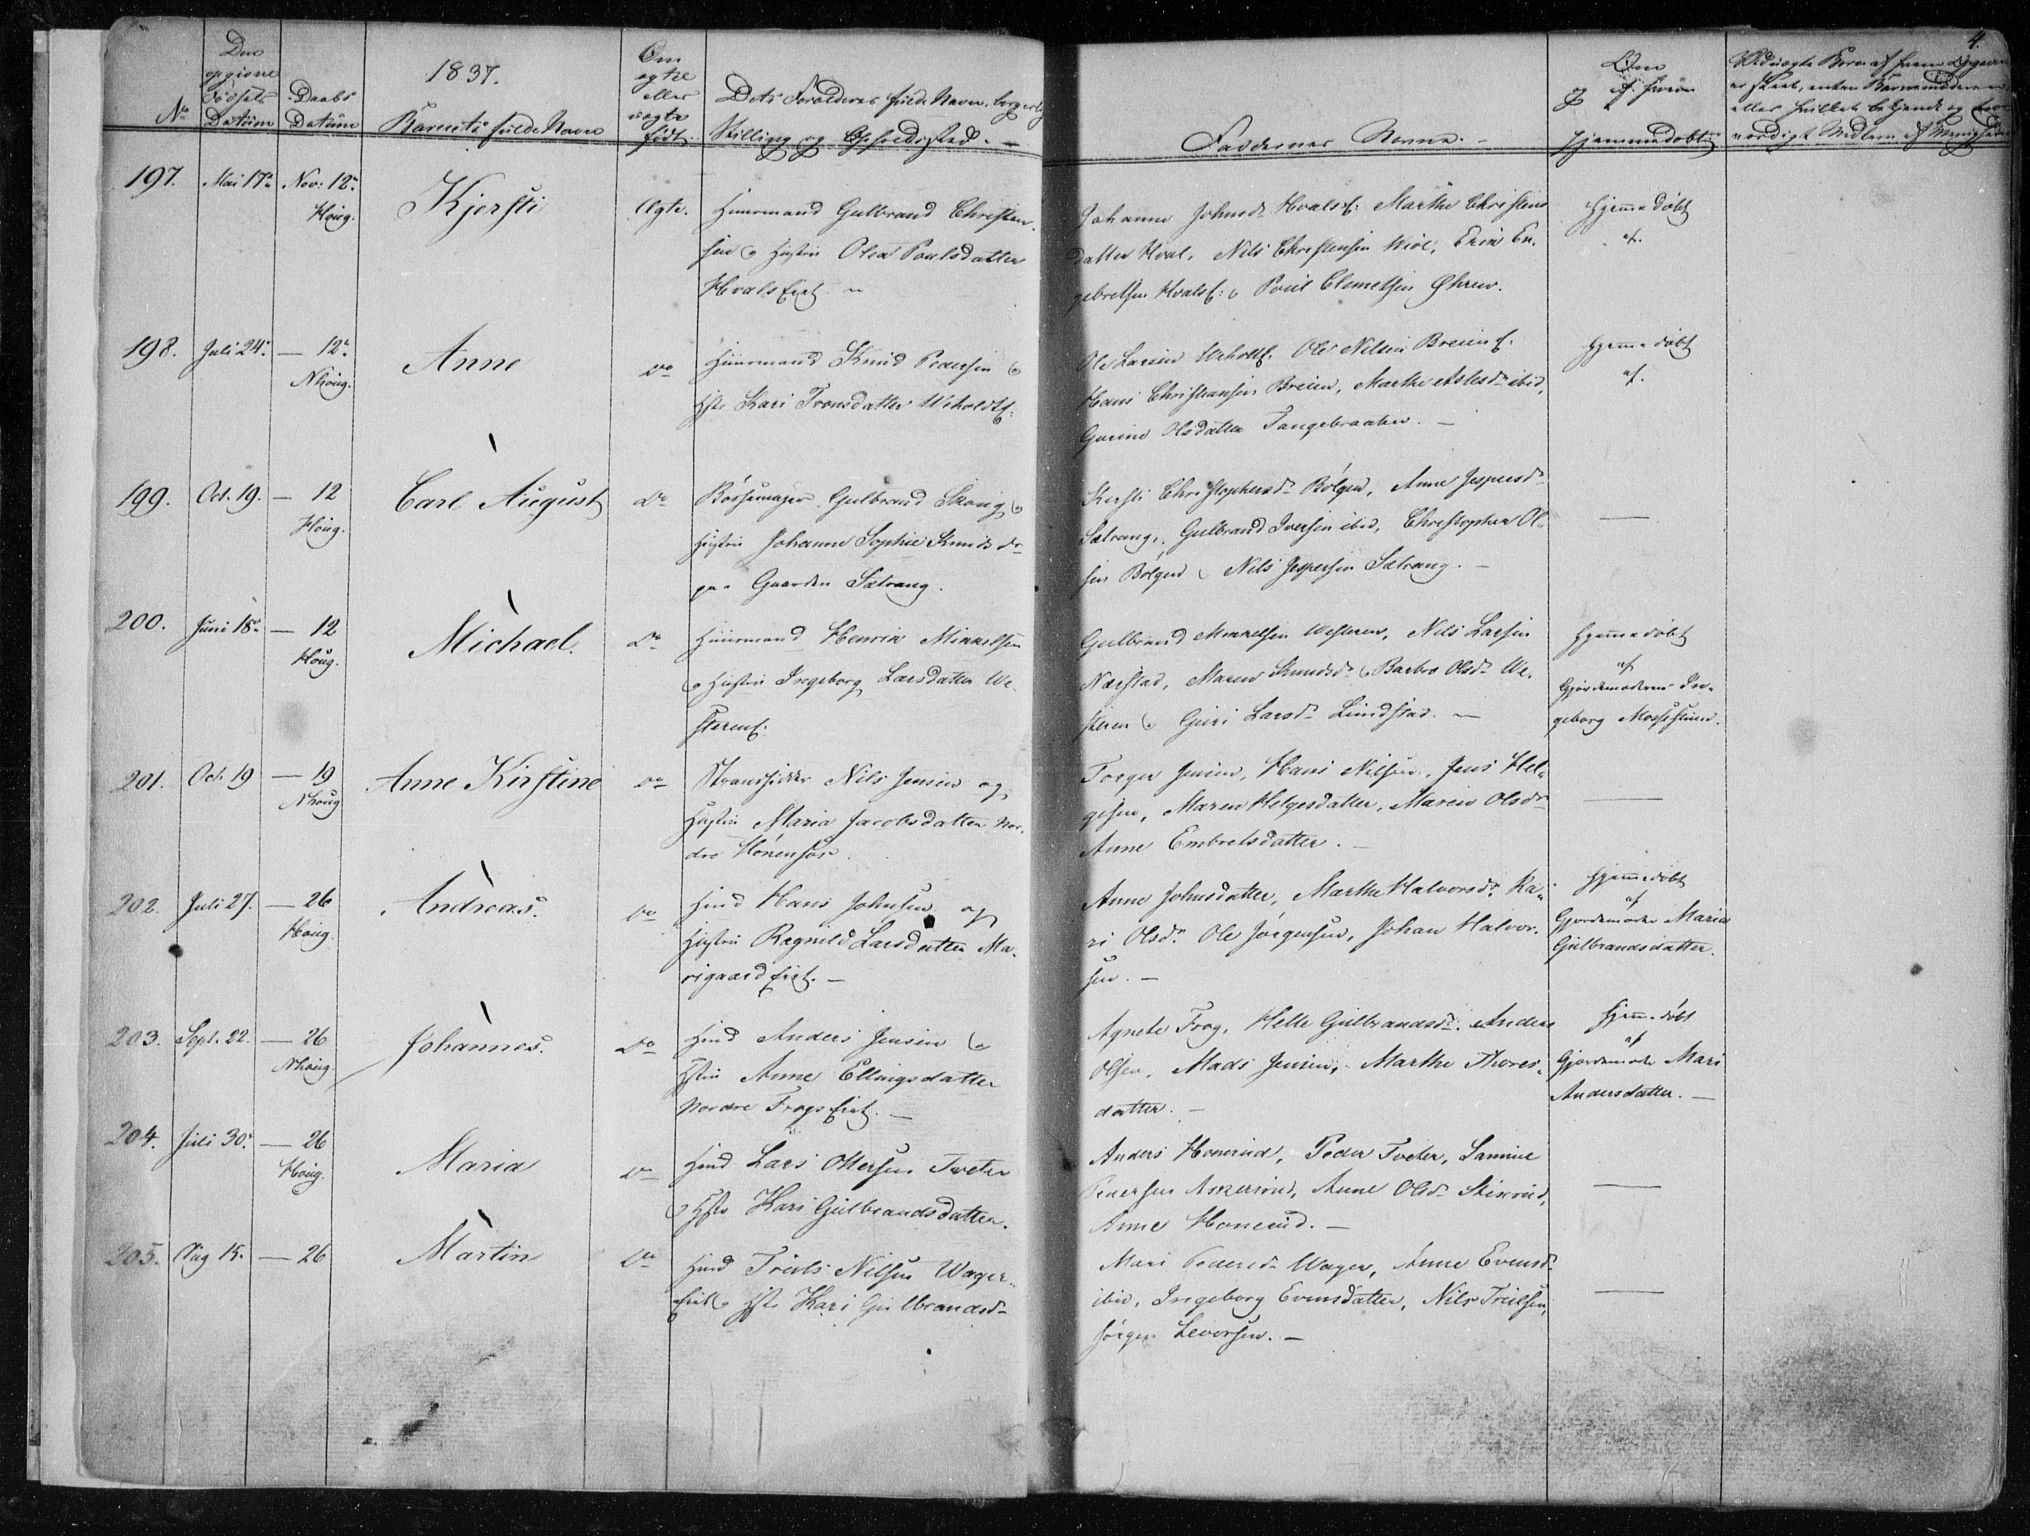 4.
No
Den opgivne Fødsels Datum
Daabs Datum
1837.
Barnets fulde Navn
Om ægte eller uægte født.
Dets Forældres fulde Navn, borgerlig
Stilling og Opholdssted. -
Faddernes Navne. -
Om og af hvem Hjemmedøbt
197. Mai 17de Nov: 12te Houg. Kjersti Ægte. Huusmand Gulbrand Christen-
sen & Hustru Olea Poulsdatter
Hvals Eiet.
Johanne Johnsd. Hvalsf: Marthe Christens
datter Hval, Nils Christensen Wiol, Erik En-
gebretsen Hvalsf: & Poul Clemetsen Øhren.
Hjemmedøbt
af.
198. Juli 24de — 12te Nhoug. Anne do Huusmand Knud Pedersen &
Hstr Kari Tronsdatter Weholdtf:
Ole Larsen Wehollf. Ole Nilsen Breienf.
Hans Christiansen Breien, Marthe Aslesdr ibid,
Gurine Olsdatter Tangebraaten. —
Hjemmedøbt
af.
199. Oct. 19. — 12 Houg. Carl August do Bøssemager Gulbrand Skoug &
Hustru Johanne Sophie Knuds dr
paa Gaarden Sætrang.
Kersti Christophersdr Bølgen, Anne Jespersdr
Sætrang, Gulbrand Iversen ibid, Christopher Ol-
sen Bølgen & Nils Jespersen Sætrang. —
—
200. Juni 18de — 12 Houg. Michael. do Huusmand Henrik Mikkelsen
& Hustru Ingeborg Larsdatter We-
sterenf:
Gulbrand Mikkelsen Westeren, Nils Larsen
Nærstad, Maren Knudsdr & Barbro Olsdr We-
steren & Guri Larsdr Lundstad. —
Hjemmedøbt
af
Gjordemoderen In-
geborg Mosesteien.
201. Oct. 19 — 19 Nhoug Anne Kirstine do Strandsidder Nils Jensen og
Hustru Maria Jacobsdatter Nor-
dre Hønenfos.
Torger Jensen, Hans Nilsen, Jens Hel-
gesen, Maren Helgesdatter, Maren Olsdr
Anne Embretsdatter. —
—
202. Juli 27. — 26 Houg. Andreas. do Hmd Hans Johnsen og
Hustru Ragnild Larsdatter Ma-
rigaard Eiet. —
Anne Johnsdatter, Marthe Halvorsdr Ka-
ri Olsdr. Ole Jørgensen, Johan Halvor-
sen. —
Hjemmedøbt
af
Gjordemoder Maria
Gulbrandsdatter.
203. Sept. 22. — 26 Nhoug. Johannes. do Hmd Anders Jensen &
Hstru Anne Ellingsdatter
Nordre Frogs Eiet. —
Agnete Frog, Helle Gulbrandsdr. Anders
Olsen, Mads Jensen, Marthe Thores-
datter. —
Hjemmedøbt
af
Gjordemoder Mari
Andersdatter. —
204. Juli 30. — 26 Houg. Maria do Hmd Lars Ottersen Tveter
& Hstr Kari Gulbrandsdatter.
Anders Honerud, Peder Tveter, Samuel
Pedersen Askerud, Anne Olsdr Stixrud,
Anne Honerud. —
—
205. Aug 15. — 26 Martin do Hmd Truls Nilsen Wager-
eiet & Hstr Kari Gulbrandsdr
Mari Pedersdr Wager, Anne Evensdr
ibid, Ingeborg Evensdatter, Nils Trulsen,
Jørgen Leversen. —
—